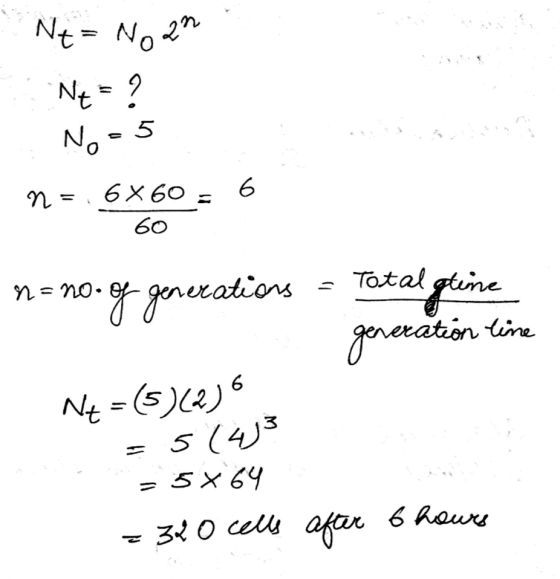 Nt = N0 2^n
Nt = ?
N0 = 5
n = 6 × 60 / 60 = 6
n = no. of generations = Total time / generation time
Nt = (5)(2)^6
= 5 (4)^3
= 5 × 64
= 320 cells after 6 hours